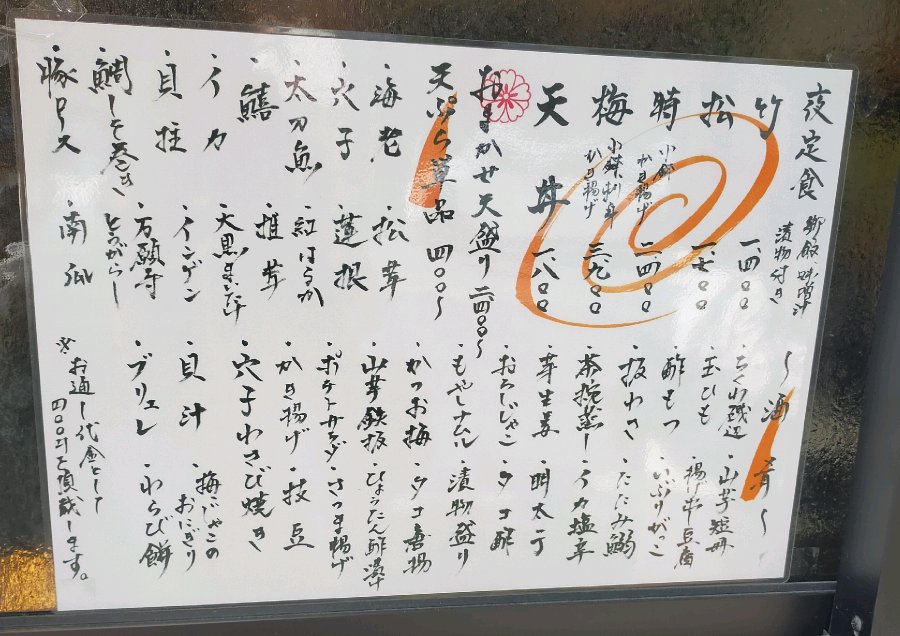 夜定食
御飯 味噌汁
漬物付き
竹 一.四〇〇
松 一.七〇〇
特 二.四〇〇
小鉢
かき揚げ
梅 三.九〇〇
小鉢、刺身
かき揚げ
天丼 一.八〇〇
おまかせ天盛り 二.四〇〇〜
天ぷら単品 四〇〇〜
・海老
・松茸
・穴子
・蓮根
・太刀魚
・紅はるか
・鱚
・椎茸
・大黒まいたけ
・イカ
・インゲン
・貝柱
・万願寺とうがらし
・鯛しそ巻き
・豚ロース
・南瓜
〜酒肴〜
・ちくわ磯辺
・山芋短冊
・玉ひも
・揚げ出し豆腐
・酢もつ
・いぶりがっこ
・板わさ
・たたみ鰯
・茶碗蒸し
・イカ塩辛
・芽生姜
・明太子
・おろしじゃこ
・タコ酢
・もやしナムル
・漬物盛り
・かつお梅
・タコ唐揚
・山芋鉄板
・ひょうたん酢漬
・ポテトサラダ
・さつま揚げ
・かき揚げ
・枝豆
・穴子わさび焼き
・貝汁
・梅じゃこのおにぎり
・ブリュレ
・わらび餅
※お通し代金として
四〇〇円を頂戴します。